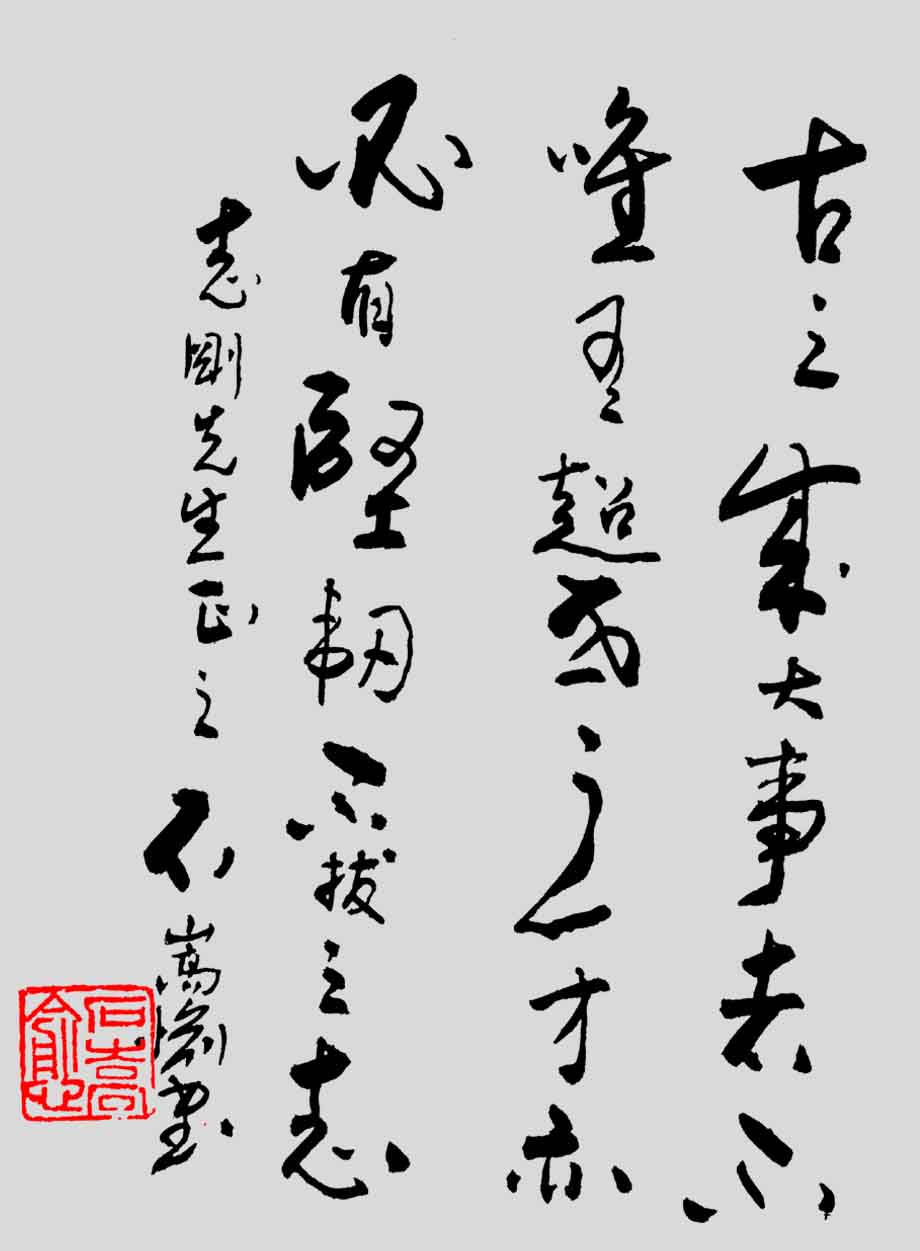 古之成大事者不
唯有超世之才亦
必有堅韌不拔之志
志剛先生正之 石嵩愉書
石嵩愉